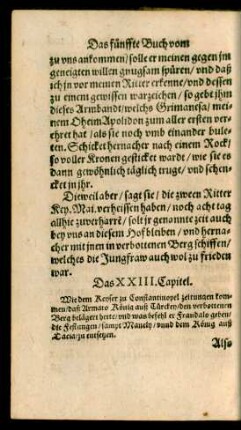 Das fünffte Buch vom
zu vns ankommen / soll er meinen gegen jm
geneigten willen gnugsam spüren / vnd daß
ich jn vor meinen Ritter erkenne / vnd dessen
zu einem gewissen warzeichen / so gebt jhm
dieses Armbandt / welchs Grimanesa / mei-
nem Oheim Apolidon zum aller ersten ver-
ehret hat / als sie noch vmb einander bule-
ten. Schicket hernacher nach einem Rock /
so voller Kronen gesticket wardt / wie sie es
dann gewöhnlich täglich truge / vnd schen-
cket in jhr.
Dieweil aber / sagt sie / die zween Ritter
Key. Mai. verheissen haben / noch acht tag
allhie zuverharrē / solt jr genannte zeit auch
bey vns an diesem Hof bleiben / vnd herna-
cher mit jnen in verbottenen Berg schiffen /
welches die Jungfraw auch wol zu frieden
war.
Das XXIII. Capitel.
Wie dem Keyser zu Constantinopel zeitungen kom-
men / daß Armato König auß Türckey / den verbottenen
Berg belägert hette / vnd was befehl er Frandalo geben /
die Festungen / sampt Manely / vnnd dem König auß
Dacia / zu entsetzen.
Also